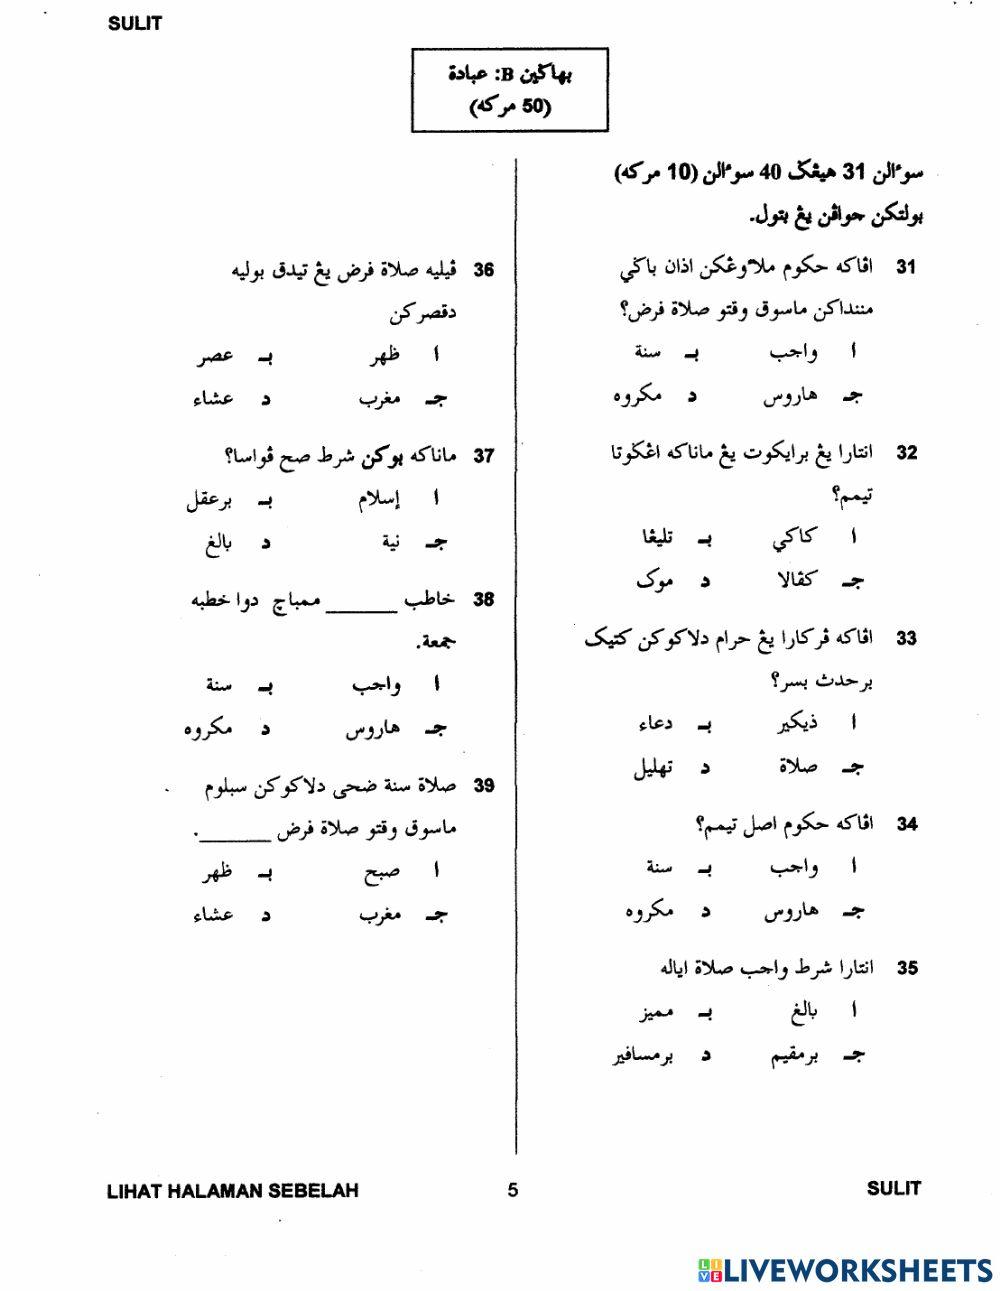 SULIT
بهاݢين B: عبادة
(50 مركه)
سوءالن 31 هيڠݢ 40 سوءالن (10 مركه)
بولتكن جواڤن يڠ بتول.
31 اڤاكه حكوم ملاوڠكن اذان باݢي
مننداكن ماسوق وقتو صلاة فرض؟
ا واجب بـ سنة
جـ هاروس د مكروه
32 انتارا يڠ برايكوت يڠ ماناكه اڠݢوتا
تيمم؟
ا كاكي بـ تليڠا
جـ كڤالا د موک
33 اڤاكه ڤركارا يڠ حرام دلاكوكن كتيک
برحدث بسر؟
ا ذيكير بـ دعاء
جـ صلاة د تهليل
34 اڤاكه حكوم اصل تيمم؟
ا واجب بـ سنة
جـ هاروس د مكروه
35 انتارا شرط واجب صلاة اياله
ا بالغ بـ مميز
جـ برمقيم د برمسافير
36 ڤيليه صلاة فرض يڠ تيدق بوليه
دقصركن
ا ظهر بـ عصر
جـ مغرب د عشاء
37 ماناكه بوكن شرط صح ڤواسا؟
ا إسلام بـ برعقل
جـ نية د بالغ
38 خاطب _______ ممباچ دوا خطبه
جمعة.
ا واجب بـ سنة
جـ هاروس د مكروه
39 صلاة سنة ضحى دلاكوكن سبلوم
ماسوق وقتو صلاة فرض _______.
ا صبح بـ ظهر
جـ مغرب د عشاء
LIHAT HALAMAN SEBELAH
5
SULIT
LIVEWORKSHEETS